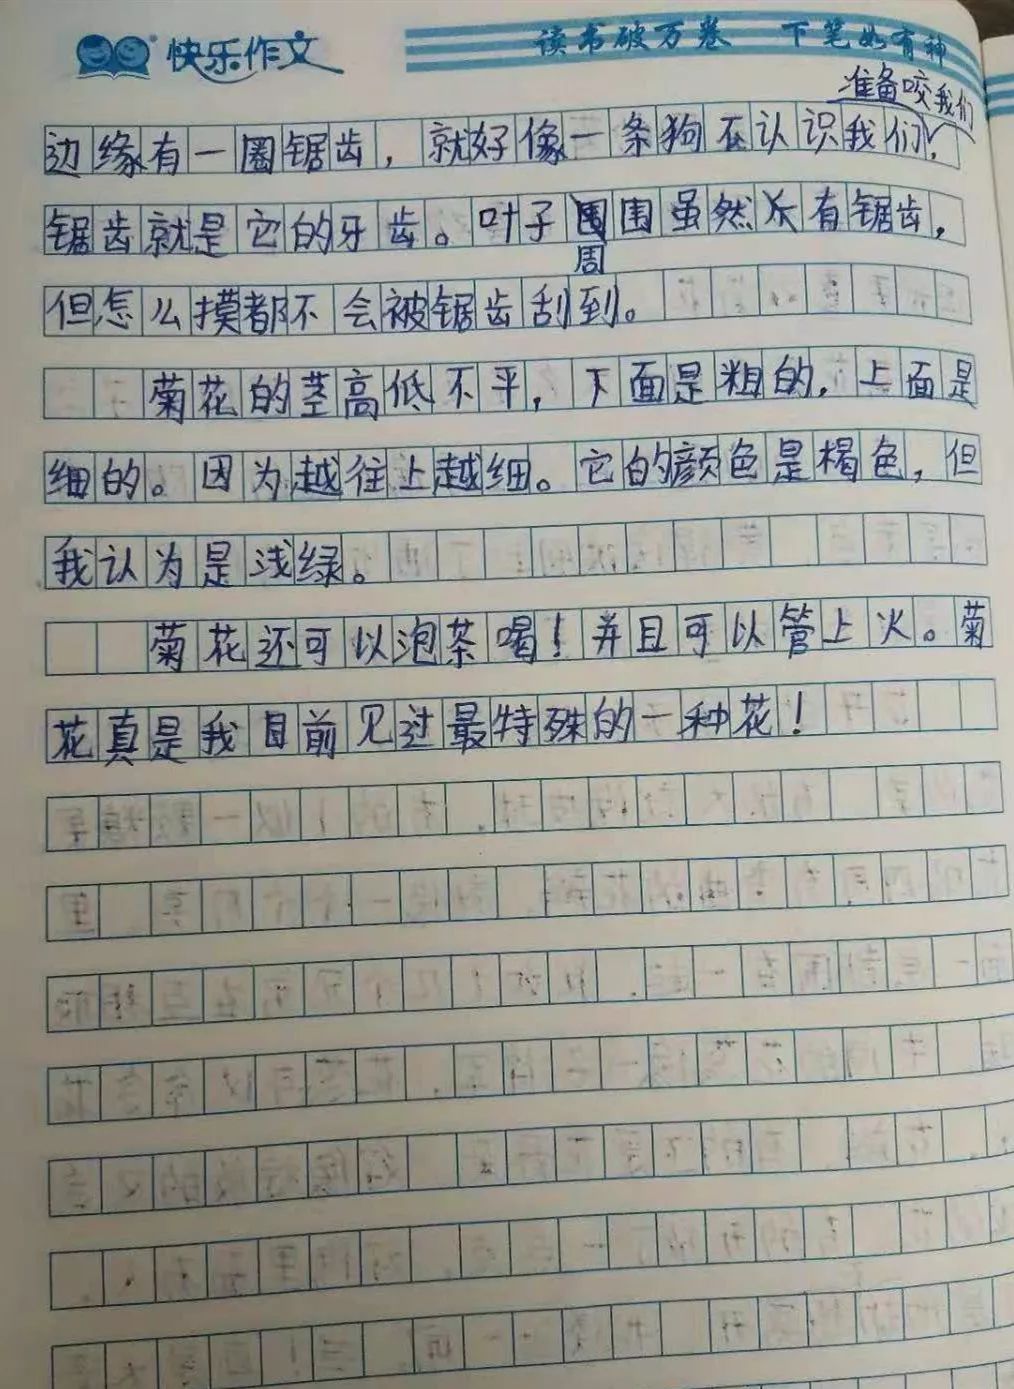 快乐作文
读书破万卷 下笔如有神
准备咬我们
边缘有一圈锯齿，就好像一条狗不认识我们，
锯齿就是它的牙齿。叶子围围虽然有锯齿，
周
但怎么摸都不会被锯齿刮到。
菊花的茎高低不平，下面是粗的，上面是
细的。因为越往上越细。它的颜色是褐色，但
我认为是浅绿。
菊花还可以泡茶喝！并且可以管上火。菊
花真是我目前见过最特殊的一种花！